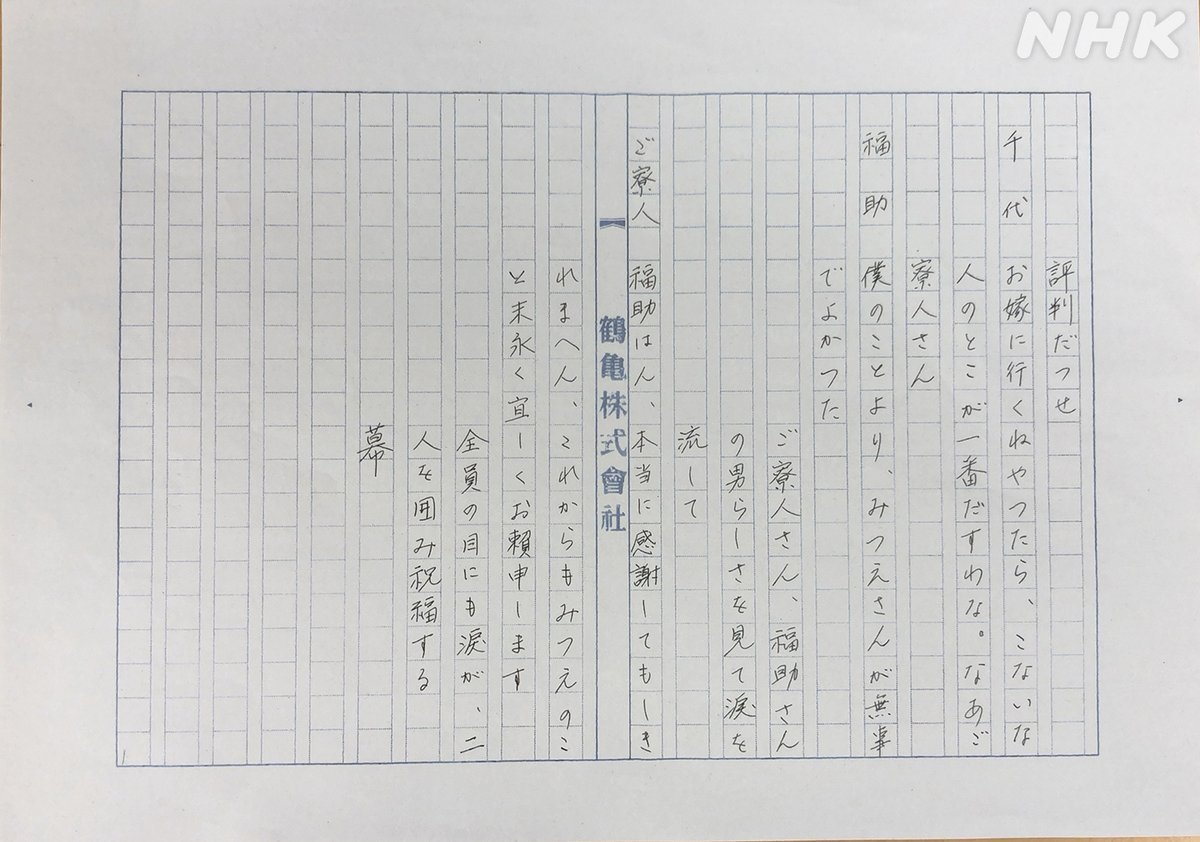 NHK
評判だつせ
千代 お嫁に行くねやつたら、こないな
人のとこが一番だすわな。なあご
寮人さん
福助 僕のことより、みつえさんが無事
でよかつた
ご寮人さん、福助さん
の男らしさを見て涙を
流して
ご寮人 福助はん、本当に感謝してもしき
れまへん、これからもみつえのこ
と末永く宜しくお頼申します
全員の目にも涙が、二
人を囲み祝福する
幕
鶴亀株式會社